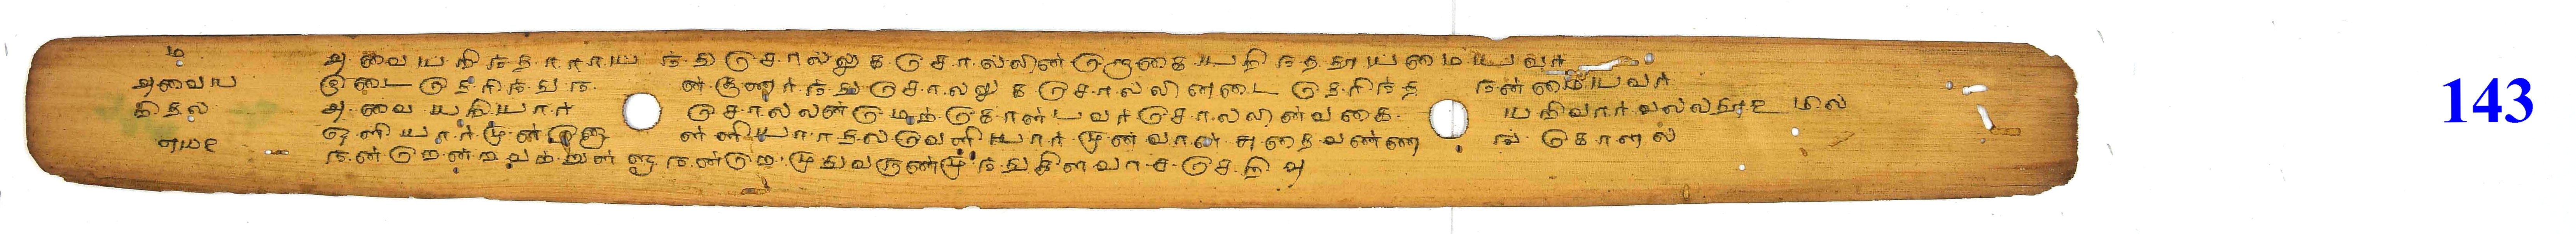 அவைய
றிதல்
௭௰௨
அவையறிந்தாராய ந்து சொல்லுக சொல்லின்றொகையறிந்த தூய்மையவர்
இடைதெரிந்து ந ன்குணர்ந்து சொல்லுக சொல்லினடை தெரிந்த நன்மையவர்
அவையறியார் சொல்லன்மேற்கொள்பவர் சொல்லின்வகை யறிவார் வல்லதூஉ மில்
ஒளியார்முன்னொ ள்ளியராதல் வெளியார்முன் வான்சுதைவண்ண ங் கொளல்
நன்றென்றவற்றுள்ளு நன்றே முதுவருண்முந்து கிளவாச் செறிவு
143